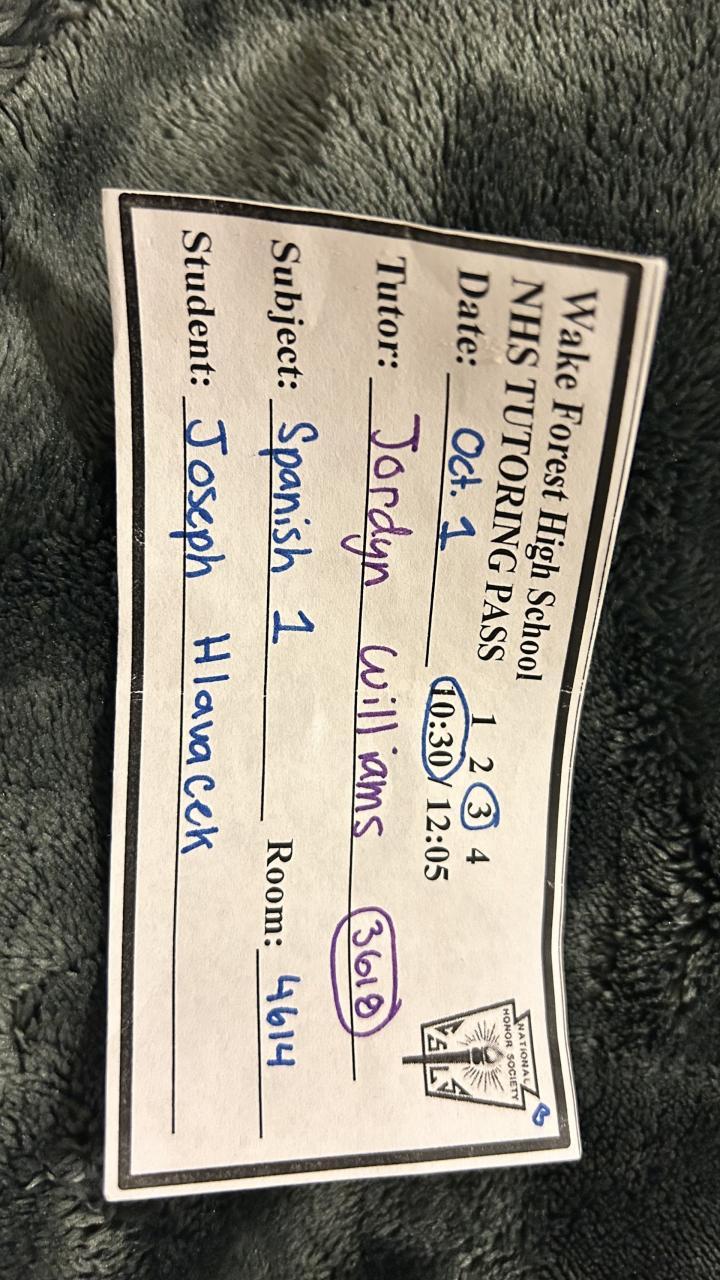 Wake Forest High School
NHS TUTORING PASS
1 2 3 4
Date: Oct. 1 10:30 / 12:05
Tutor: Jordyn Williams 3618
Subject: Spanish 1 Room: 4614
Student: Joseph Hlavacek
NATIONAL
HONOR SOCIETY
B